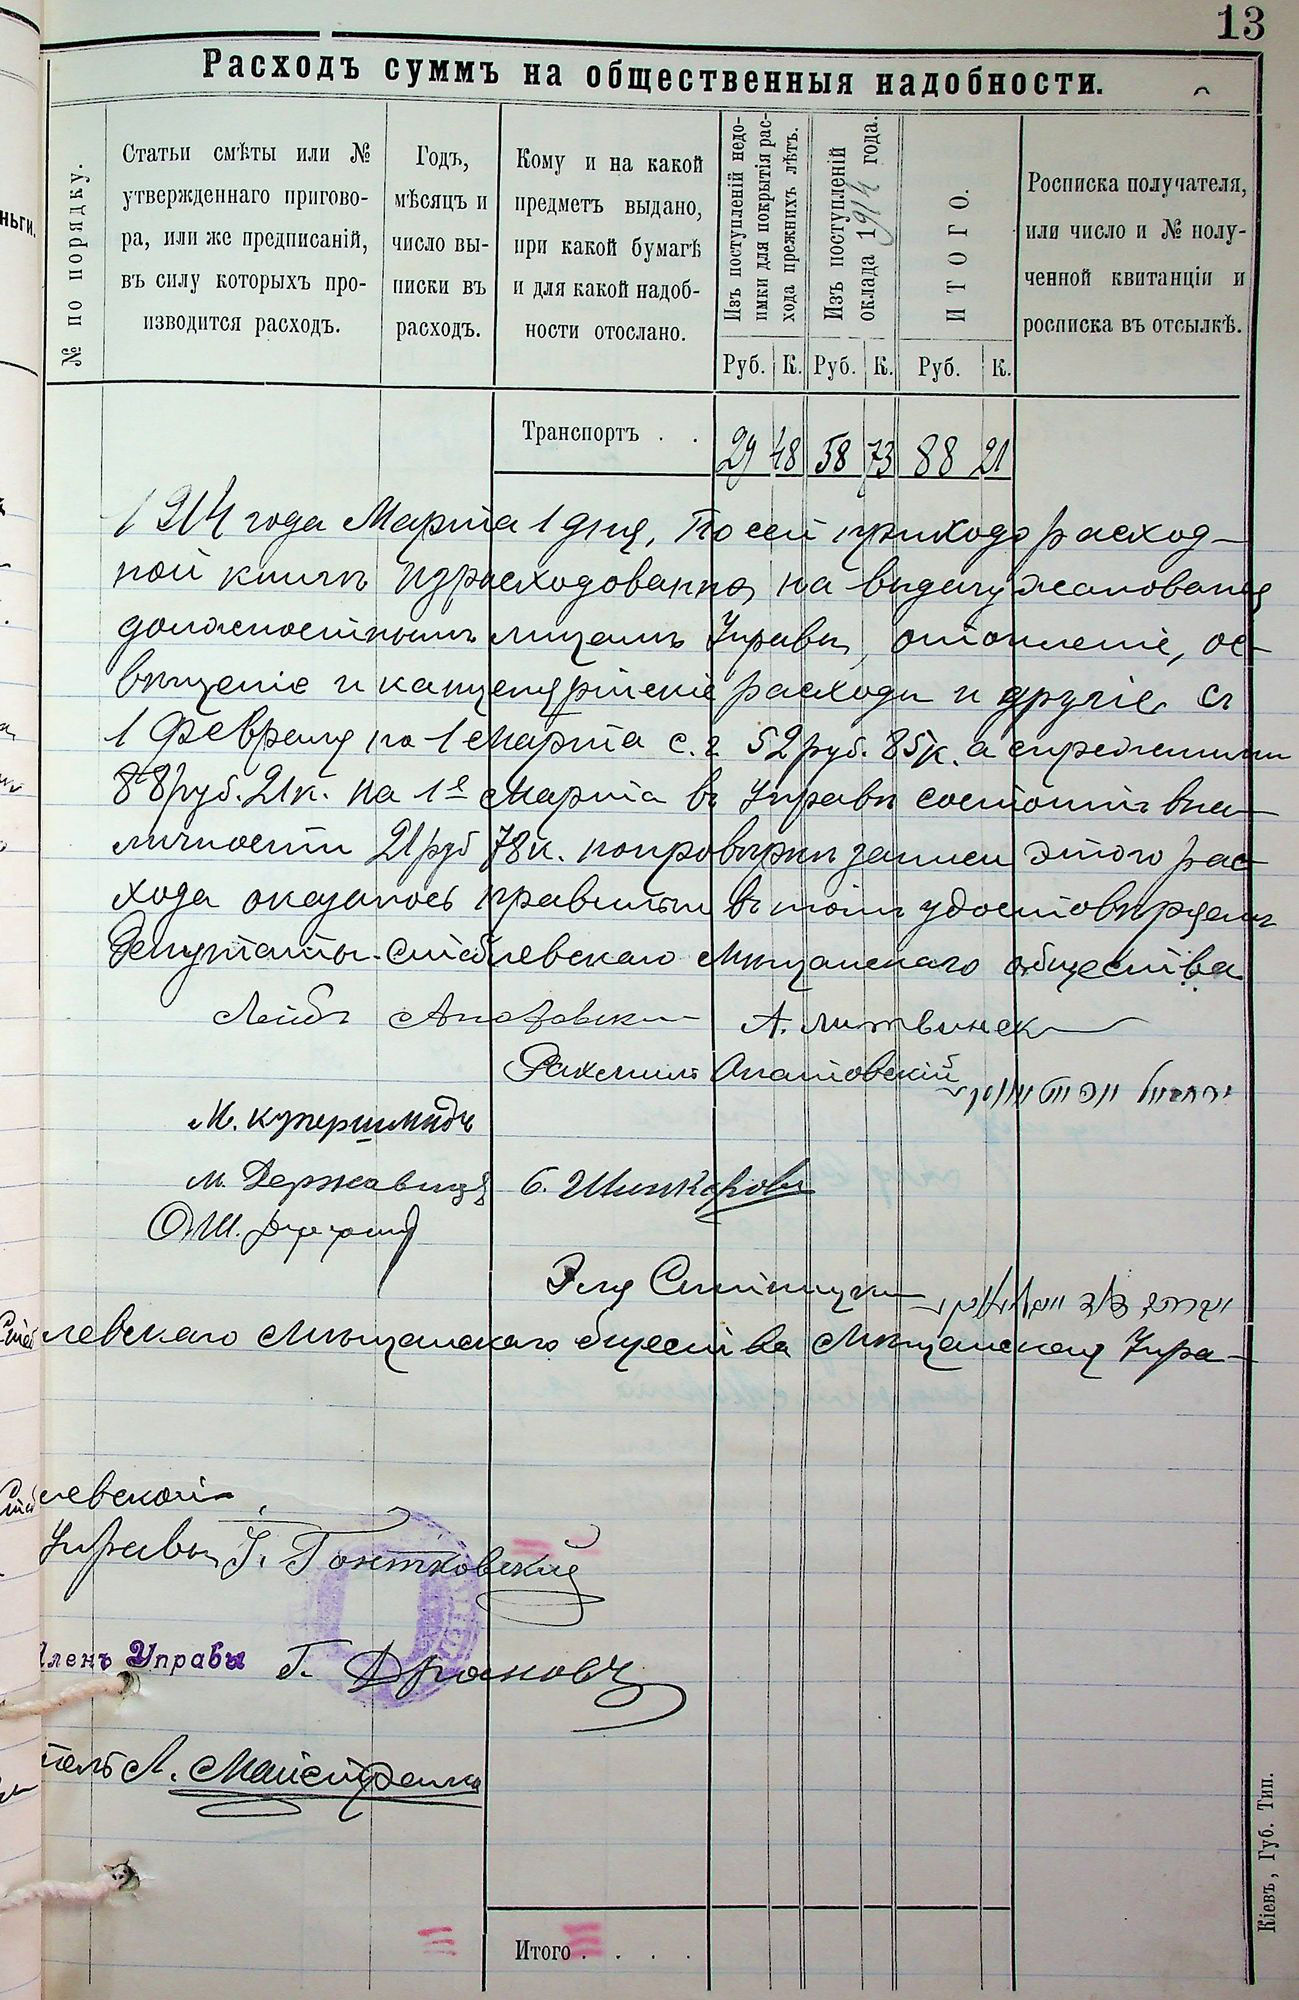 13
Расходъ суммъ на общественныя надобности.
№ по порядку.
Статьи смѣты или №
утвержденнаго пригово-
ра, или же предписаній,
въ силу которыхъ про-
изводится расходъ.
Годъ,
мѣсяцъ и
число вы-
писки въ
расходъ.
Кому и на какой
предметъ выдано,
при какой бумагѣ
и для какой надоб-
ности отослано.
Изъ поступленій недо-
имки для покрытія рас-
хода прежнихъ лѣтъ.
Изъ поступленій
оклада 1914 года.
ИТОГО.
Росписка получателя,
или число и № полу-
ченной квитанціи и
росписка въ отсылкѣ.
Руб. К. Руб. К. Руб. К.
Транспортъ . . 29 48 58 73 88 21
1914 года Марта 1 дня, По сей приходо расход-
ной книгѣ израсходованно на выдачу жалованья
должностнымъ лицамъ Управы, отопленіе, ос-
вѣщеніе и канцелярійскіе расходы и другіе съ
1 Февраля по 1 Марта с. г. 52 руб. 85 к. а съ прежними
88 руб. 21 к. На 1е Марта въ Управѣ состоитъ вна-
личности 21 руб 78 к. попровѣркѣ записи этого рас-
хода оказалось правильн въ томъ удостовѣряемъ
Депутаты Стеблевскаго Мѣщанскаго общества
Лейбъ А. Литвинск
Рахмиль Опатовскій
М. Купершмидъ
М. Державецъ Б. Шинкарово
О.Ш.
Эля
Стеблевскаго Мѣщанскаго бщества Мѣщанской Упра-
левской
Управы Г. Гонтковскій
Членъ Управы Г. Драновъ
тель Л. Майстренко
Итого . . . .
Кіевъ, Губ. Тип.
ньги.